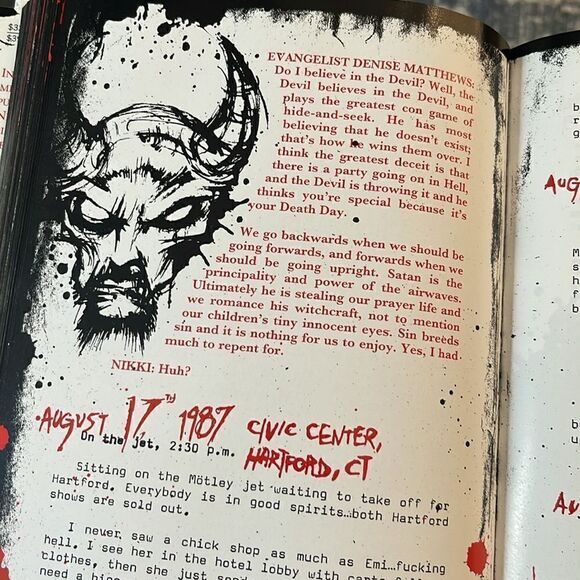 EVANGELIST DENISE MATTHEWS:
Do I believe in the Devil? Well, the
Devil believes in the Devil, and
plays the greatest con game of
hide-and-seek. He has most
believing that he doesn't exist;
that's how he wins them over. I
think the greatest deceit is that
there is a party going on in Hell,
and the Devil is throwing it and he
thinks you're special because it's
your Death Day.
We go backwards when we should be
going forwards, and forwards when we
should be going upright. Satan is the
principality and power of the airwaves.
Ultimately he is stealing our prayer life and
we romance his witchcraft, not to mention
our children's tiny innocent eyes. Sin breeds
sin and it is nothing for us to enjoy. Yes, I had
much to repent for.
NIKKI: Huh?
AUGUST 17TH 1987 CIVIC CENTER,
HARTFORD, CT
On the jet, 2:30 p.m.
Sitting on the Mötley jet waiting to take off for
Hartford. Everybody is in good spirits…both Hartford
shows are sold out.
I never saw a chick shop as much as Emi…fucking
hell. I see her in the hotel lobby with
clothes, then she just
need a